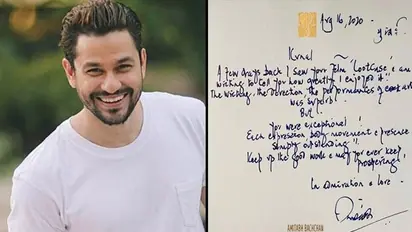 Aug 16, 2020
Kunal
A few days back I saw your film 'Lootcase' & am
writing to tell you how greatly I enjoyed it''
The writing, the direction, the performances of
was superb!
But ..
you were exceptional!
Each expression, body movement & presence
simply outstanding!!
Keep up the good work & may you ever keep
prospering!
In admiration & love -
AMITABH BACHCHAN